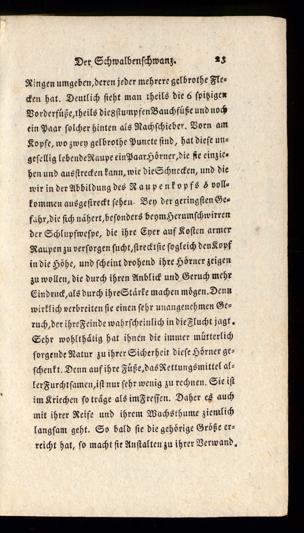 Der Schwalbenschwanz. 23
Ringen umgeben, deren jeder mehrere gelbrothe Fle-
cken hat. Deutlich sieht man theils die 6 spitzigen
Vorderfüße, theils die stumpfen Bauchfüße und noch
ein Paar solcher hinten als Nachschieber. Vorn am
Kopfe, wo zwey gelbrothe Puncte sind, hat diese un-
gesellig lebende Raupe ein Paar Hörner, die sie einzie-
hen und ausstrecken kann, wie die Schnecken, und die
wir in der Abbildung des Raupenkopfs ♁ voll-
kommen ausgestreckt sehen. Bey der geringsten Ge-
fahr, die sich nähert, besonders beym Herumschwirren
der Schlupfwespe, die ihre Eyer auf Kosten armer
Raupen zu versorgen sucht, streckt sie sogleich den Kopf
in die Höhe, und scheint drohend ihre Hörner zeigen
zu wollen, die durch ihren Anblick und Geruch mehr
Eindruck, als durch ihre Stärke machen mögen. Denn
wirklich verbreiten sie einen sehr unangenehmen Ge-
ruch, der ihre Feinde wahrscheinlich in die Flucht jagt.
Sehr wohlthätig hat ihnen die immer mütterlich
sorgende Natur zu ihrer Sicherheit diese Hörner ge-
schenkt. Denn auf ihre Füße, das Rettungsmittel al-
ler Furchtsamen, ist nur sehr wenig zu rechnen. Sie ist
im Kriechen so träge als im Fressen. Daher es auch
mit ihrer Reise und ihrem Wachsthume ziemlich
langsam geht. So bald sie die gehörige Größe er-
reicht hat, so macht sie Anstalten zu ihrer Verwand-